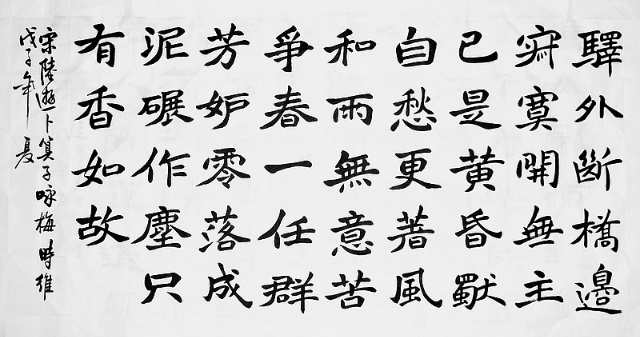 驛外斷橋邊
寂寞開無主
已是黄昏獨
自愁更著風
和雨無意苦
爭春一任群
芳妒零落成
泥碾作塵只
有香如故
宋陸游卜算子咏梅 時維
戊子年 夏